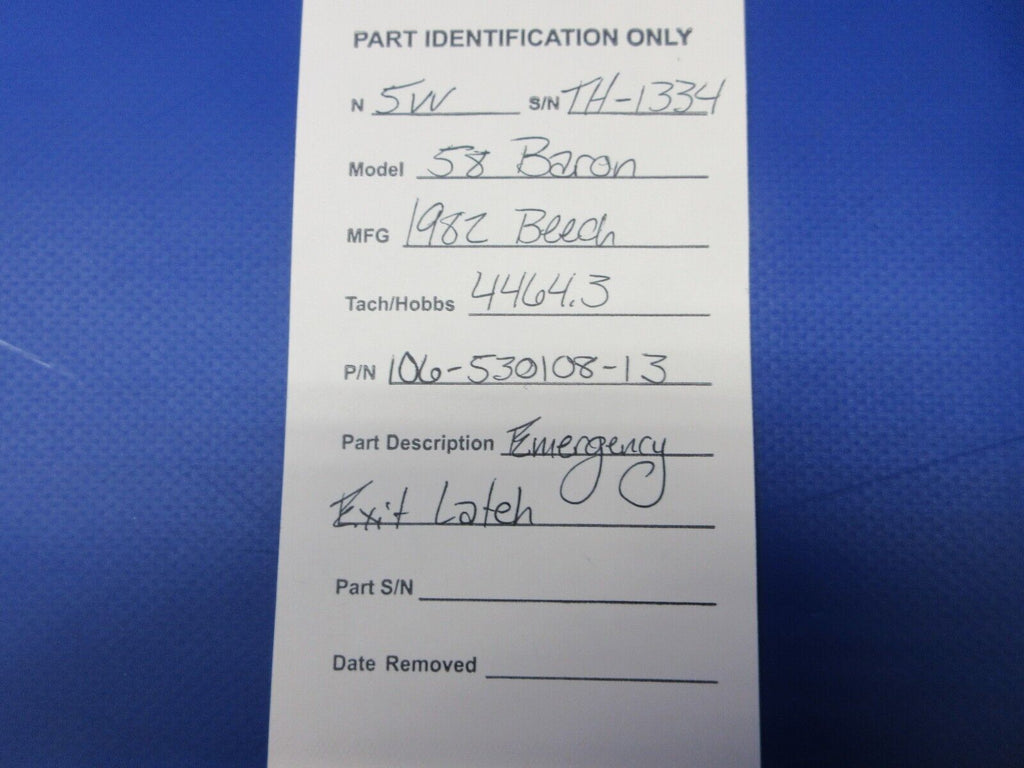 PART IDENTIFICATION ONLY
N 5W S/N TH-1334
Model 58 Baron
MFG 1982 Beech
Tach/Hobbs 4464.3
P/N 106-530108-13
Part Description Emergency
Exit Latch
Part S/N
Date Removed